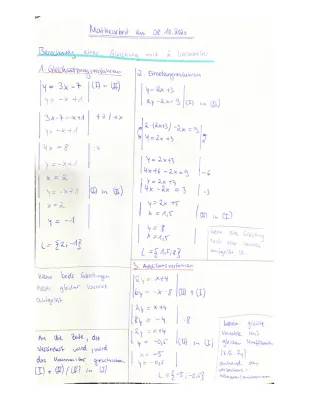 Mathearbeit am 08.10.2020
Berechnung einer Gleichung mit 2 Variablen
1. Gleichsetzungsverfahren
| y = 3x - 7 | (I) = (II)
| y = -x + 1 |
| 3x - 7 = -x + 1 | +7 / +x
| y = -x + 1 |
| 4x = 8 | :4
| y = -x + 1 |
| x = 2 |
| y = -x + 1 | (I) in (II)
| x = 2 |
| y = -1 |
L = {2; -1}
Wenn beide Gleichungen
nach gleicher Variable
aufgelöst
An die Seite, die
verändert wird, wird
das
(I) + (II) / (II) in (I)
2. Einsetzungsverfahren
| y = 2x + 3 |
| 2y - 2x = 9 | (I) in (II)
| 2·(2x+3) - 2x = 9 |
| y = 2x + 3 |
| 4x + 6 - 2x = 9 | -6
| y = 2x + 3 |
| 4x - 2x = 3 | -3
| y = 2x + 3 |
| x = 1,5 | (II) in (I)
| y = 6 |
| x = 1,5 |
Wenn eine Gleichung
nach einer Variable
aufgelöst ist
3. Additionsverfahren
| 2y = x + 4 |
| 6y = -x - 8 | (II) + (I)
| 2y = x + 4 |
| 8y = -4 | :8
| 2y = x + 4 |
| y = -0,5 | (II) in (I)
| x = -5 |
| y = -0,5 |
L = {-5; -0,5}
Wenn gleiche
Variable mit
gleichen